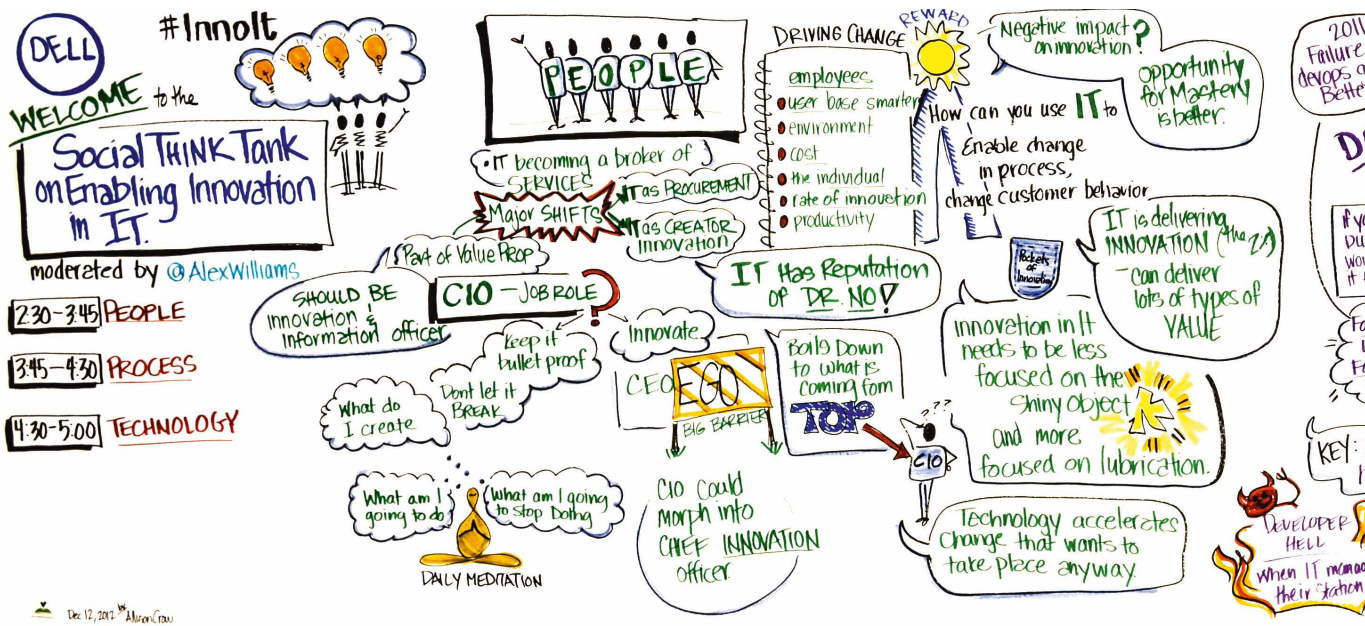 DELL
#InnoIt
WELCOME to the
Social THINK Tank
on Enabling Innovation
in IT.
moderated by @AlexWilliams
2:30-3:45 PEOPLE
3:45-4:30 PROCESS
4:30-5:00 TECHNOLOGY
Dec 12, 2012 by
Alison Crow
PEOPLE
•IT becoming a broker of
SERVICES
Major SHIFTS
IT as PROCUREMENT
IT as CREATOR
Innovation
Part of Value Prop
SHOULD BE
innovation &
information officer
CIO - JOB ROLE
?
Keep it
bullet proof
Dont let it
BREAK
What do
I create
What am I
going to do
What am I going
to stop Doing
DAILY MEDITATION
Innovate
CEO
EGO
BIG BARRIER
CIO Could
morph into
CHIEF INNOVATION
officer
DRIVING CHANGE
employees
user base smarter
environment
cost
the individual
rate of innovation
productivity
IT Has Reputation
of DR. NO!
Boils Down
to what is
coming fom
TOP
???
CIO
REWARD
Negative impact
on innovation?
opportunity
for Mastery
is better.
How can you use IT to
Enable change
in process,
change customer behavior
Pockets
of
Innovation
IT is delivering
INNOVATION (the 2%)
- can deliver
lots of types of
VALUE
innovation in It
needs to be less
focused on the
Shiny Object
and more
focused on lubrication.
Technology accelerates
Change that wants to
take place anyway.
2011
Failure
devops
Better
D
If yo
wou
it
Fo
Fo
KEY:
DEVELOPER
HELL
when IT manag
their station